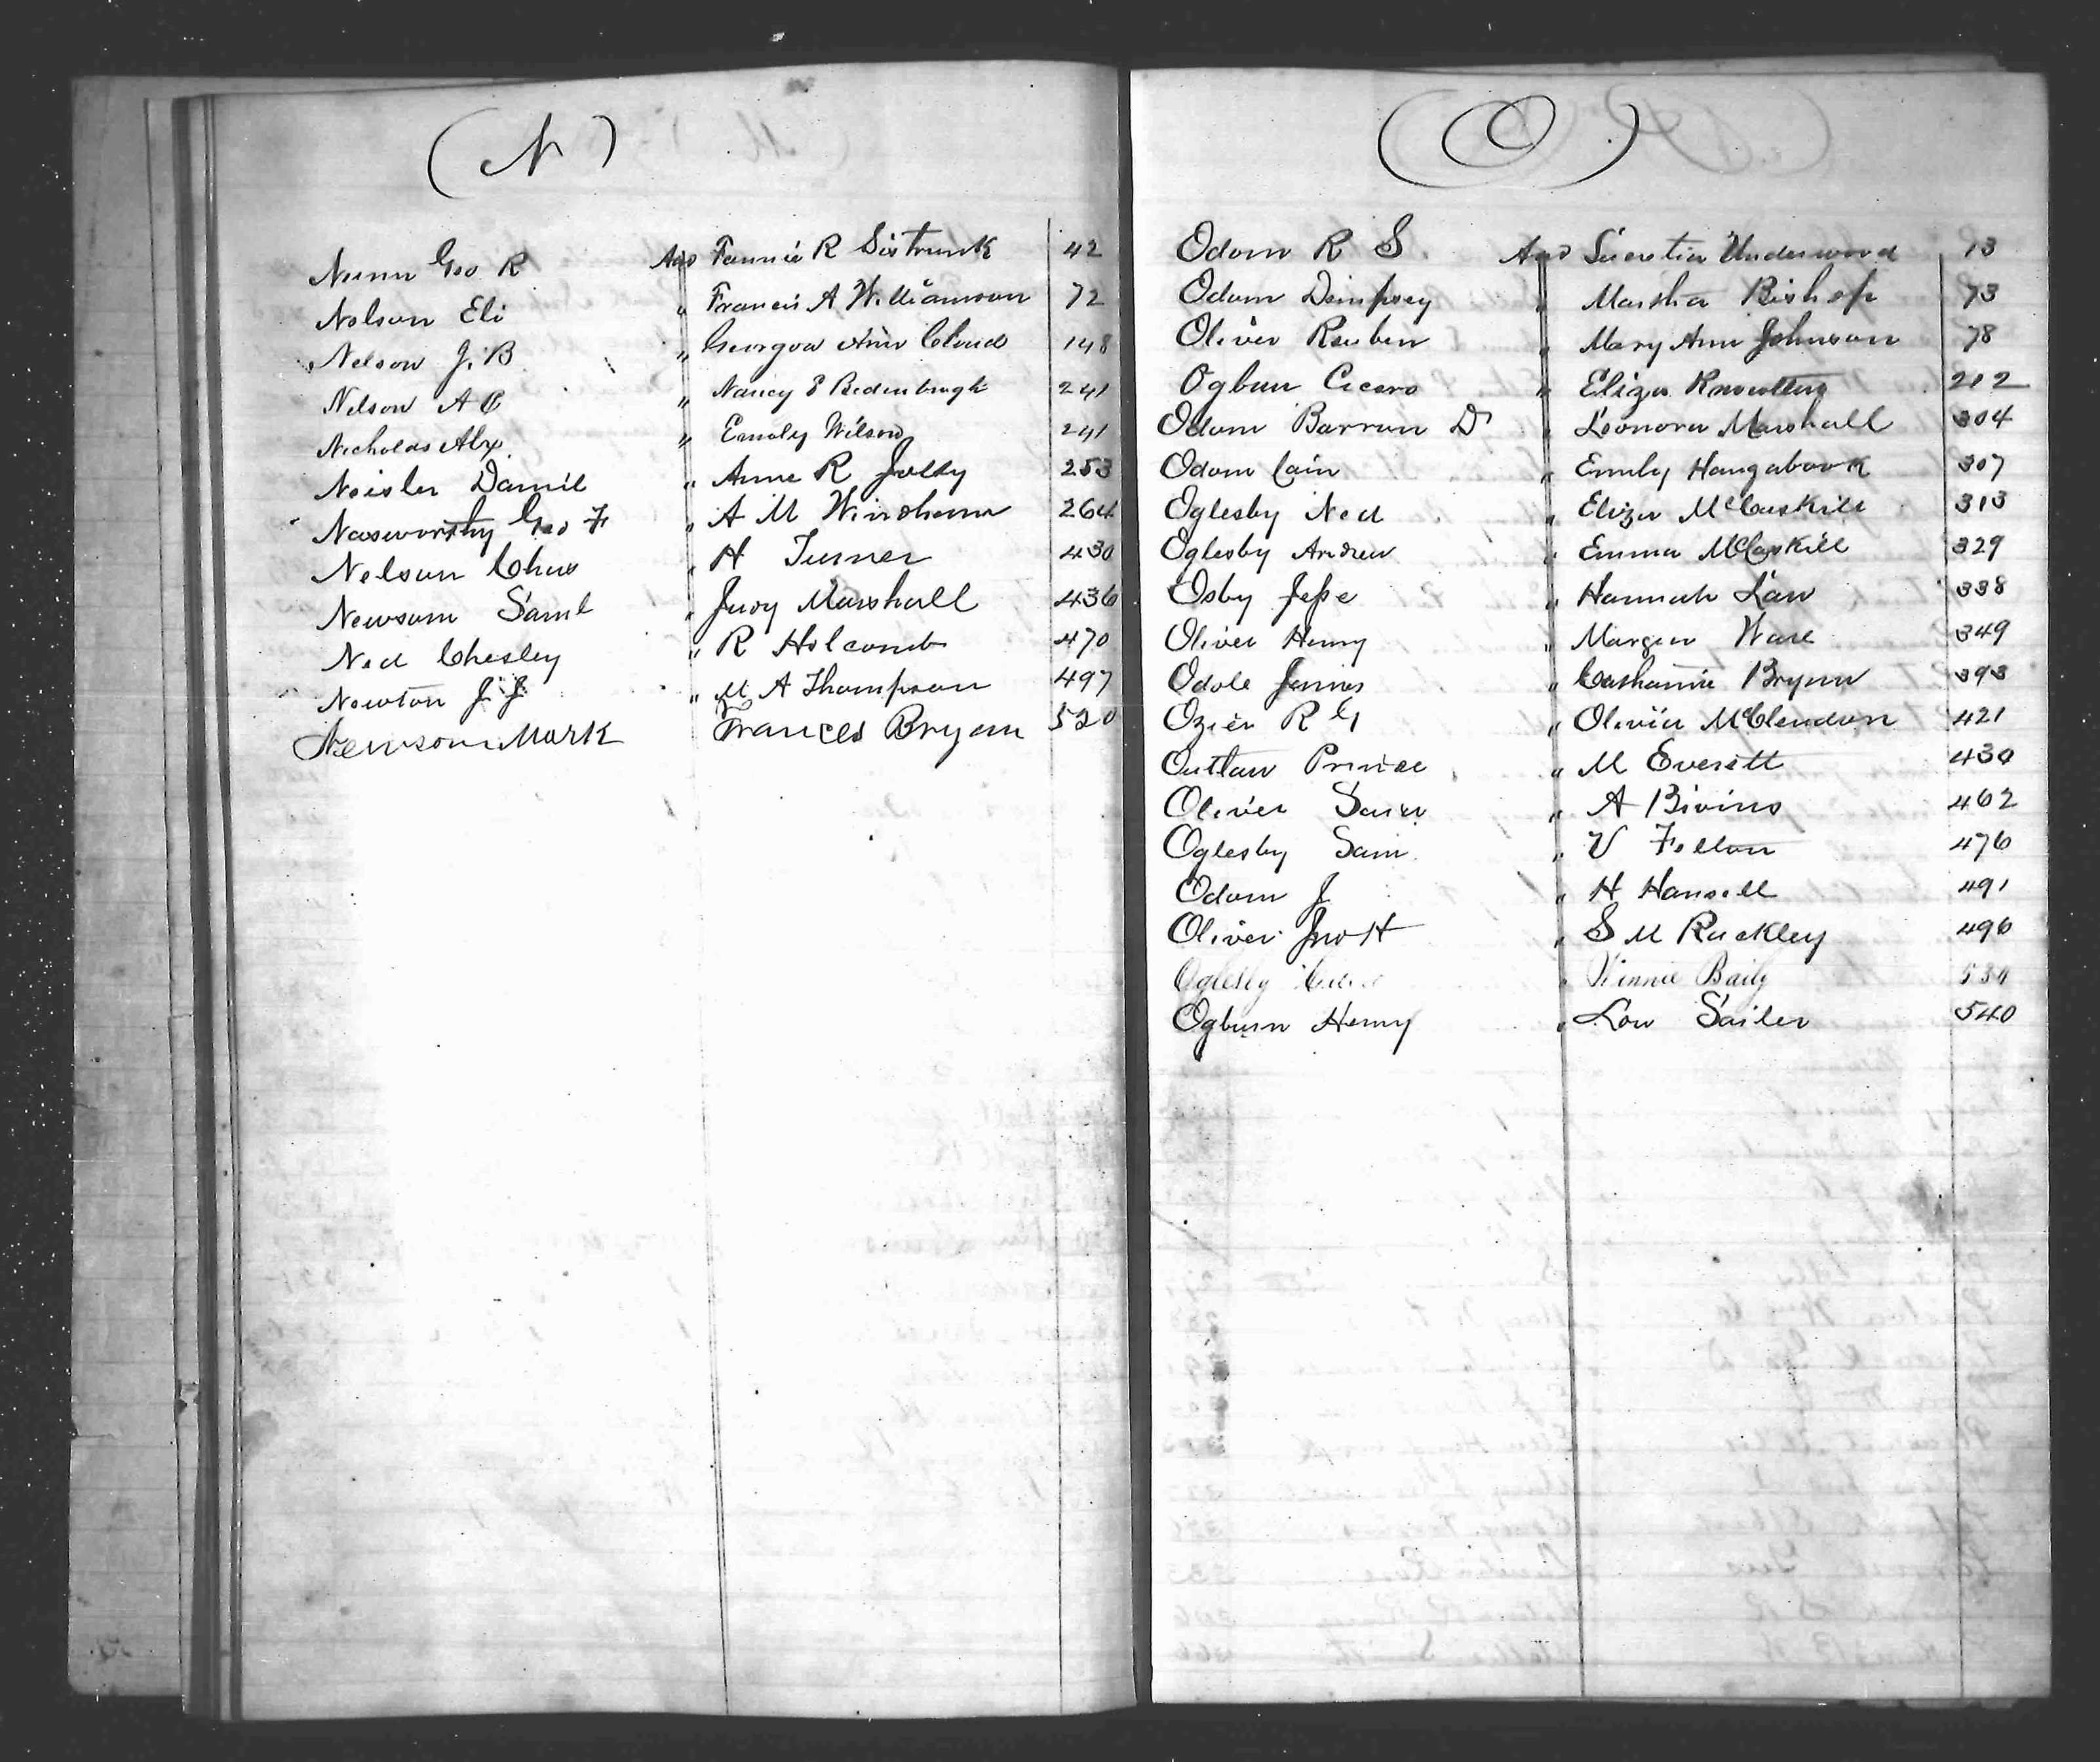 (N)
Nunn Geo R And Fannie R Sistrunk 42
Nelson Eli " Francis A Williamson 72
Nelson J. B " Georgia Ann Cloud 148
Nelson A C " Nancy E Bedenbaugh 241
Nicholas Alx. " Emaly Wilson 241
Neisler Daniel " Anne R Jolly 253
Nasworthy Geo F " A M Windham 264
Nelson Chas " H Turner 430
Newsom Saml " Judy Marshall 436
Ned Chesley " R Holcomb 470
Newton J. J. " M A Thompson 497
Newsom Mark Frances Bryan 520
(O)
Odom R S And Lucretia Underwood 13
Odom Dempsey " Marsha Bishop 73
Oliver Reuben " Mary Ann Johnson 78
Ogbun Cicero " Eliza 212
Odom Barron D " Leonora Marshall 304
Odom Cain " Emily Hangabook 307
Oglesby Ned " Eliza McCaskill 313
Oglesby Andrew " Emma McCaskill 329
Osby Jesse " Hannah Law 338
Oliver Henry " Ware 349
Odole James " Bryan 393
Ozier R G " Olivia McClendon 421
Outlaw Prince " M Everett 430
Oliver " A Bivins 462
Oglesby Sam. " V Felton 476
Odom J " H Hansell 491
Oliver Jno H " S M Ruckley 496
Oglesby " Vinnie Baily
Ogburn Henry " Lou Sailer 540